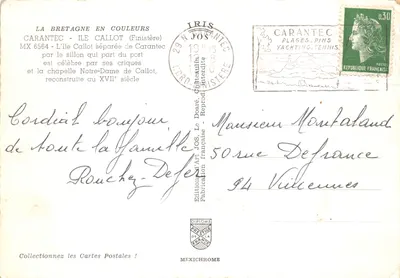 LA BRETAGNE EN COULEURS
CARANTEC - ILE CALLOT (Finistère)
MX 6564 - L'île Callot séparée de Carantec
par le sillon qui part du port
est célèbre par ses criques
et la chapelle Notre-Dame de Callot,
reconstruite au XVIIe siècle
IRIS
CARANTEC
PLAGES, PINS
YACHTING, TENNIS
0,30
REPUBLIQUE FRANÇAISE
Cordial bonjour
de toute la famille
Ronchez-Defer
Monsieur Montaland
50 rue Defrance
94 Vincennes
Fabrication française - Reproduction interdite
Collectionnez les Cartes Postales !
MEXICHROME